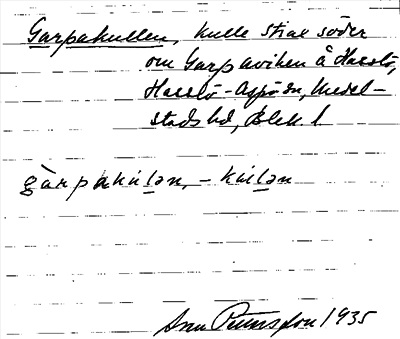 Garpakullen, kulle strax söder
om Garpaviken å Hasslö,
Hasslö-Aspöda, Medel-
stads hd, Blek. l
gàrpakúlən, – kùlən
Petersson 1935